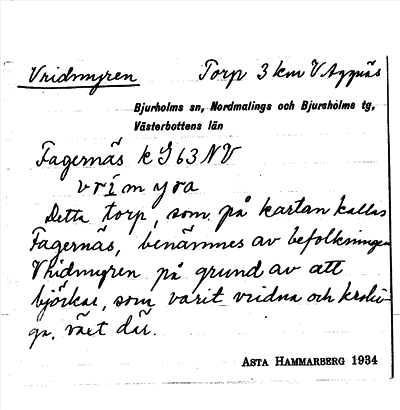 Vridmyren Torp 3 km V Agnäs
Bjurholms sn, Nordmalings och Bjurholms tg,
Västerbottens län
Fagernäs k J 63 NV
vrimyra
Detta torp, som på kartan kallas
Fagernäs, benämnes av befolkningen
Vridmyren på grund av att
björkar, som varit vridna och kroki-
ga, växt där.
ASTA HAMMARBERG 1934